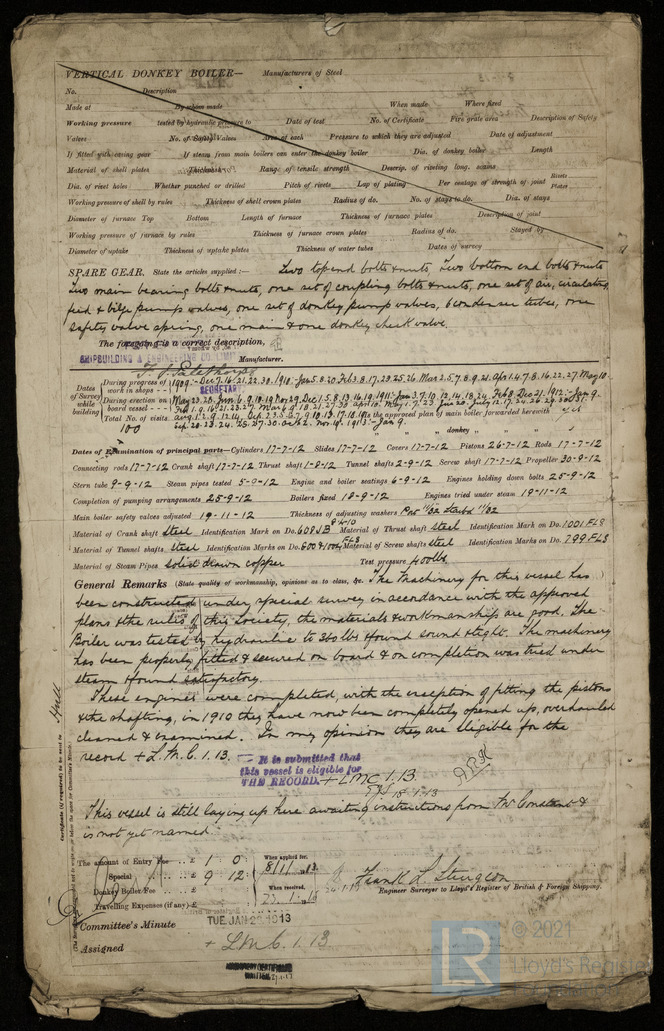 VERTICAL DONKEY BOILER— Manufacturers of Steel
No. Description
Made at By whom made When made Where fixed
Working pressure tested by hydraulic pressure to Date of test No. of Certificate Fire grate area Description of Safety
Valves No. of Safety Valves Area of each Pressure to which they are adjusted Date of adjustment
If fitted with easing gear If steam from main boilers can enter the donkey boiler Dia. of donkey boiler Length
Material of shell plates Thickness Range of tensile strength Descrip. of riveting long. seams
Dia. of rivet holes Whether punched or drilled Pitch of rivets Lap of plating Per centage of strength of joint Rivets Plates
Working pressure of shell by rules Thickness of shell crown plates Radius of do. No. of stays to do. Dia. of stays
Diameter of furnace Top Bottom Length of furnace Thickness of furnace plates Description of joint
Working pressure of furnace by rules Thickness of furnace crown plates Radius of do. Stayed by
Diameter of uptake Thickness of uptake plates Thickness of water tubes Dates of survey
SPARE GEAR. State the articles supplied:— Two top end bolts & nuts, Two bottom end bolts & nuts
Two main bearing bolts & nuts, one set of coupling bolts & nuts, one set of air, circulating
feed & bilge pump valves, one set of donkey pump valves, 6 condenser tubes, one
safety valve spring, one main & one donkey check valve.
The foregoing is a correct description,
SHIPBUILDING & ENGINEERING CO. LIMITED Manufacturer.
SECRETARY
Dates of Survey while building
During progress of work in shops - -
During erection on board vessel - - -
Total No. of visits 100
the approved plan of main boiler forwarded herewith yes
" " " donkey " " "
Dates of Examination of principal parts—Cylinders 17-7-12 Slides 17-7-12 Covers 17-7-12 Pistons 26-7-12 Rods 17-7-12
Connecting rods 17-7-12 Crank shaft 17-7-12 Thrust shaft 1-8-12 Tunnel shafts 2-9-12 Screw shaft 17-7-12 Propeller 30-9-12
Stern tube 9-9-12 Steam pipes tested 5-7-12 Engine and boiler seatings 6-9-12 Engines holding down bolts 25-9-12
Completion of pumping arrangements 25-9-12 Boilers fixed 18-9-12 Engines tried under steam 19-11-12
Main boiler safety valves adjusted 19-11-12 Thickness of adjusting washers Port 11/32 Starbd 11/32
Material of Crank shaft Steel Identification Mark on Do. 608JB Material of Thrust shaft Steel Identification Mark on Do. 1001 FLS
Material of Tunnel shafts Steel Identification Marks on Do. Material of Screw shafts Steel Identification Marks on Do. 799 FLS
Material of Steam Pipes solid drawn copper Test pressure 400 lbs
General Remarks (State quality of workmanship, opinions as to class, &c. The Machinery for this vessel has
been constructed under special survey in accordance with the approved
plans & the rules of this society, the materials & workmanship are good. The
Boiler was tested by hydraulic to 360 lbs & found sound & tight. The machinery
has been properly fitted & secured on board & on completion was tried under
steam & found satisfactory.
These engines were completed, with the exception of fitting the pistons
& the shafting, in 1910 they have now been completely opened up, overhauled
cleaned & examined. In my opinion they are eligible for the
record + L.M.C. 1.13.
It is submitted that
this vessel is eligible for
THE RECORD. + LMC 1.13.
18.1.13
This vessel is still laying up here awaiting instructions from Mr Constant &
is not yet named.
The amount of Entry Fee .. £ 1 : 0 : When applied for,
Special .. £ 9 : 12 :
Donkey Boiler Fee .. £ : : When received,
Travelling Expenses (if any) £ : :
Frank L Sturgeon
Engineer Surveyor to Lloyd's Register of British & Foreign Shipping.
Committee's Minute TUE. JAN 28 1913
Assigned + L.M.C. 1.13
Hull
Certificate (if required) to be sent to
© 2021
Lloyd's Register
LR